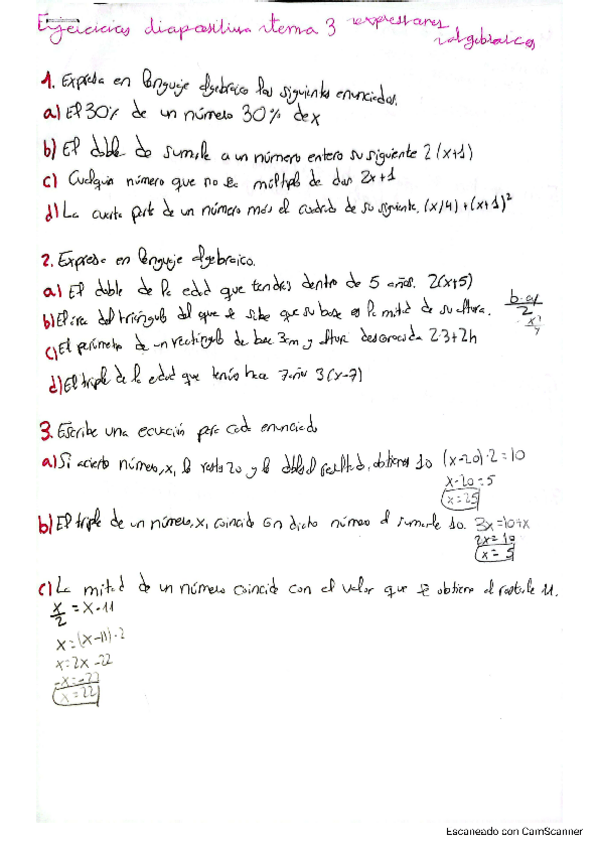 Ejercicios diapositiva tema 3 expresiones
algebraicas
1. Expresa en lenguaje algebraico los siguientes enunciados.
a) El 30% de un número 30% de x
b) El doble de sumarle a un número entero su siguiente 2(x+1)
c) Cualquier número que no sea múltiplo de dos 2x+1
d) La cuarta parte de un número más el cuadrado de su siguiente. (x/4)+(x+1)²
2. Expresa en lenguaje algebraico.
a) El doble de la edad que tendrás dentro de 5 años. 2(x+5)
b) El área del triángulo del que se sabe que su base es la mitad de su altura. b·a/2
c) El perímetro de un rectángulo de base 3cm y altura desconocida 2·3+2h
d) El triple de la edad que tenías hace 7 años 3(x-7)
3. Escribe una ecuación para cada enunciado
a) Si a cierto número, x, le resto 20 y le doblo el resultado, obtienes 10 (x-20)·2=10
x-20=5
x=25
b) El triple de un número, x, coincide con dicho número al sumarle 10. 3x=10+x
2x=10
x=5
c) La mitad de un número coincide con el valor que se obtiene al restarle 11.
x/2 = x-11
x=(x-11)·2
x=2x-22
-x=-22
x=22
Escaneado con CamScanner